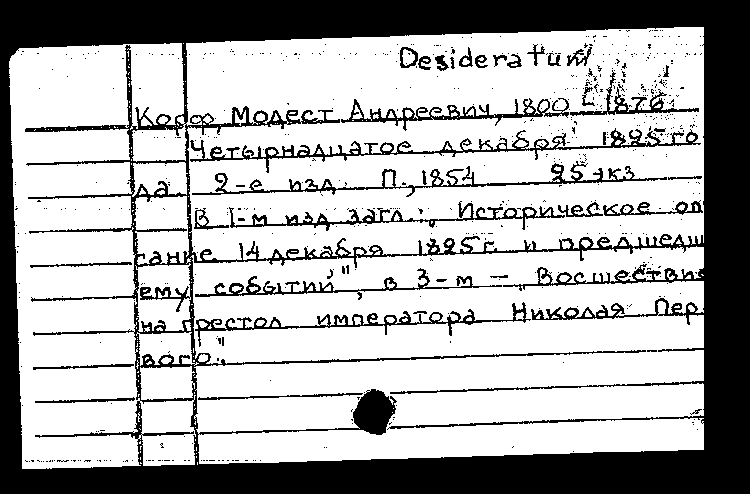 Desideratum
Корф, Модест Андреевич, 1800 - 1876
Четырнадцатое декабря 1825 го
да. 2-е изд. П., 1854 25 экз
В 1-м изд. загл.: „Историческое опи
сание 14 декабря 1825 г. и предшедш
ему событий", в 3-м — „Восшествие
на престол императора Николая Пер
вого".